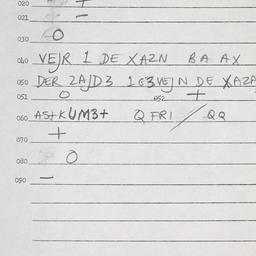 020 +
021 -
030 O
040 VEJR 1 DE XAZN BA AX
050 DER 2AJD3 1G3VEJN DE XAZA
051 O 052 +
060 AS+KUM3+ QFRI / QQ
+
070
080 O
090 -